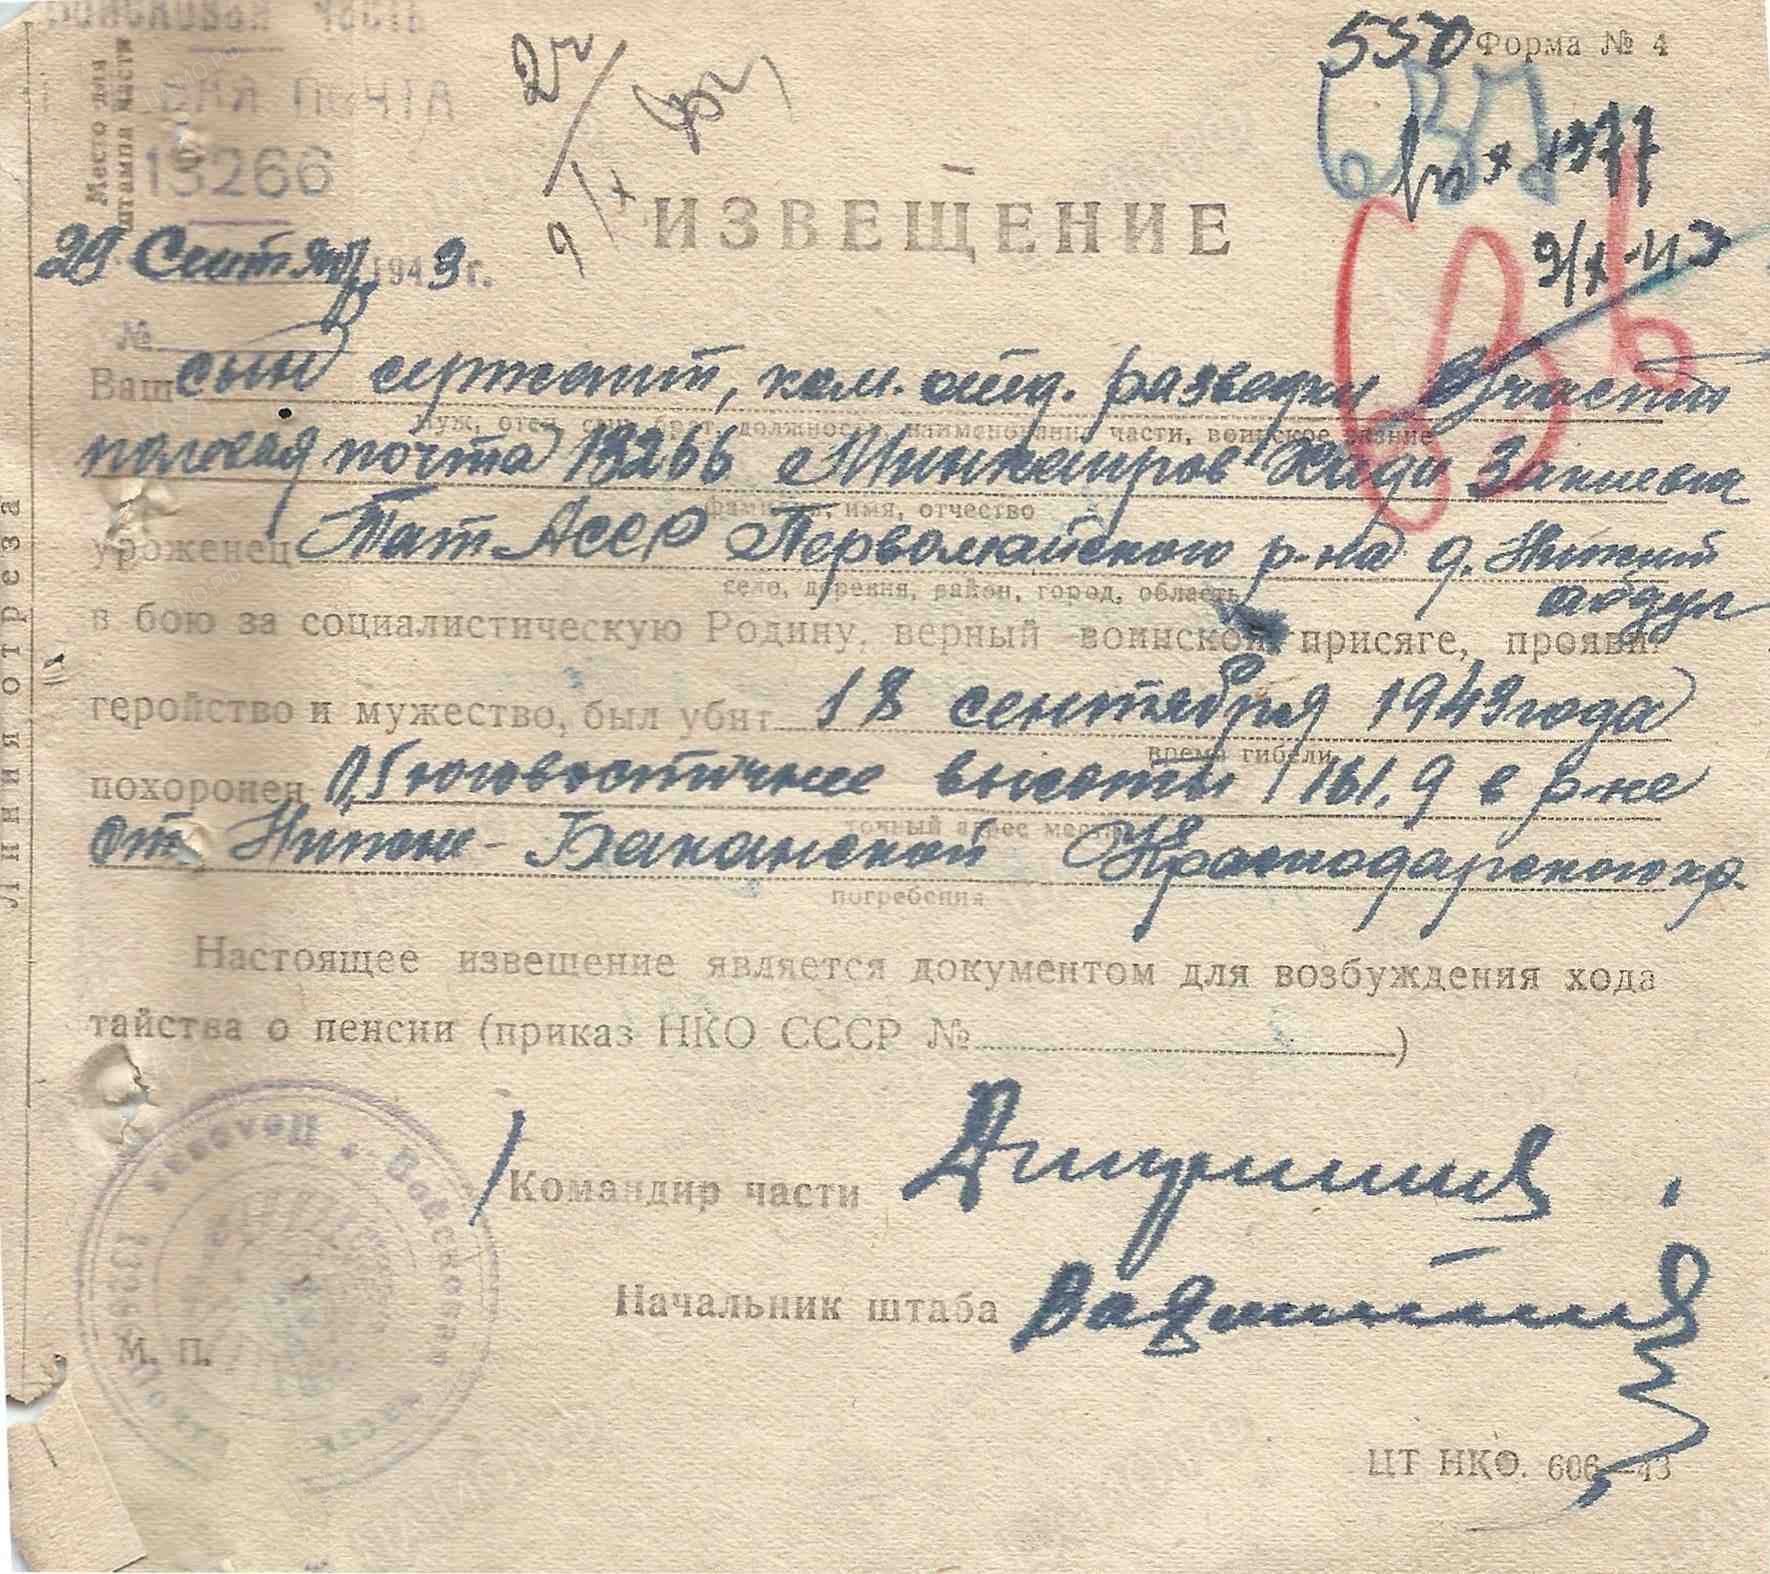 ВОЙСКОВАЯ ЧАСТЬ
Место для
штампа части
ПОЧТА
13266
550 Форма № 4
637
вх 1377
9/X-43
ИЗВЕЩЕНИЕ
29 Сентяб 1943 г.
№
Ваш сын сержант, ком. отд. разведки В/части
муж, отец, сын, брат, должность, наименование части, воинское звание
полевая почта 13266 Минкаиров Хади Закиевич
фамилия, имя, отчество
уроженец ТатАССР Первомайского р-на д. Нижний
село, деревня, район, город, область
абдул
в бою за социалистическую Родину, верный воинской присяге, прояви
геройство и мужество, был убит 18 сентября 1943 года
время гибели
похоронен 0,5 юговосточнее высоты 161,9 в р-не
точный адрес места
ст Нижне-Баканской Краснодарского кр.
погребения
Настоящее извещение является документом для возбуждения хода
тайства о пенсии (приказ НКО СССР № )
Командир части
Начальник штаба
М. П.
Полевая Войсковая часть
ЦТ НКО. 606—43
Линия отреза